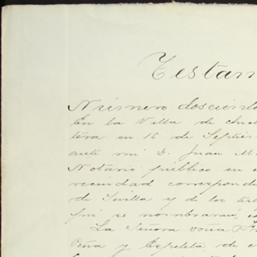 Testam
Número doscient
En la Villa de
tera en 16 de Septie
ante mi D. Juan M
Notario publico en e
vecindad correspond
de Sevilla y de los
fin se nombrarán
La Señora Doña
Peña y Ezpeleta de e